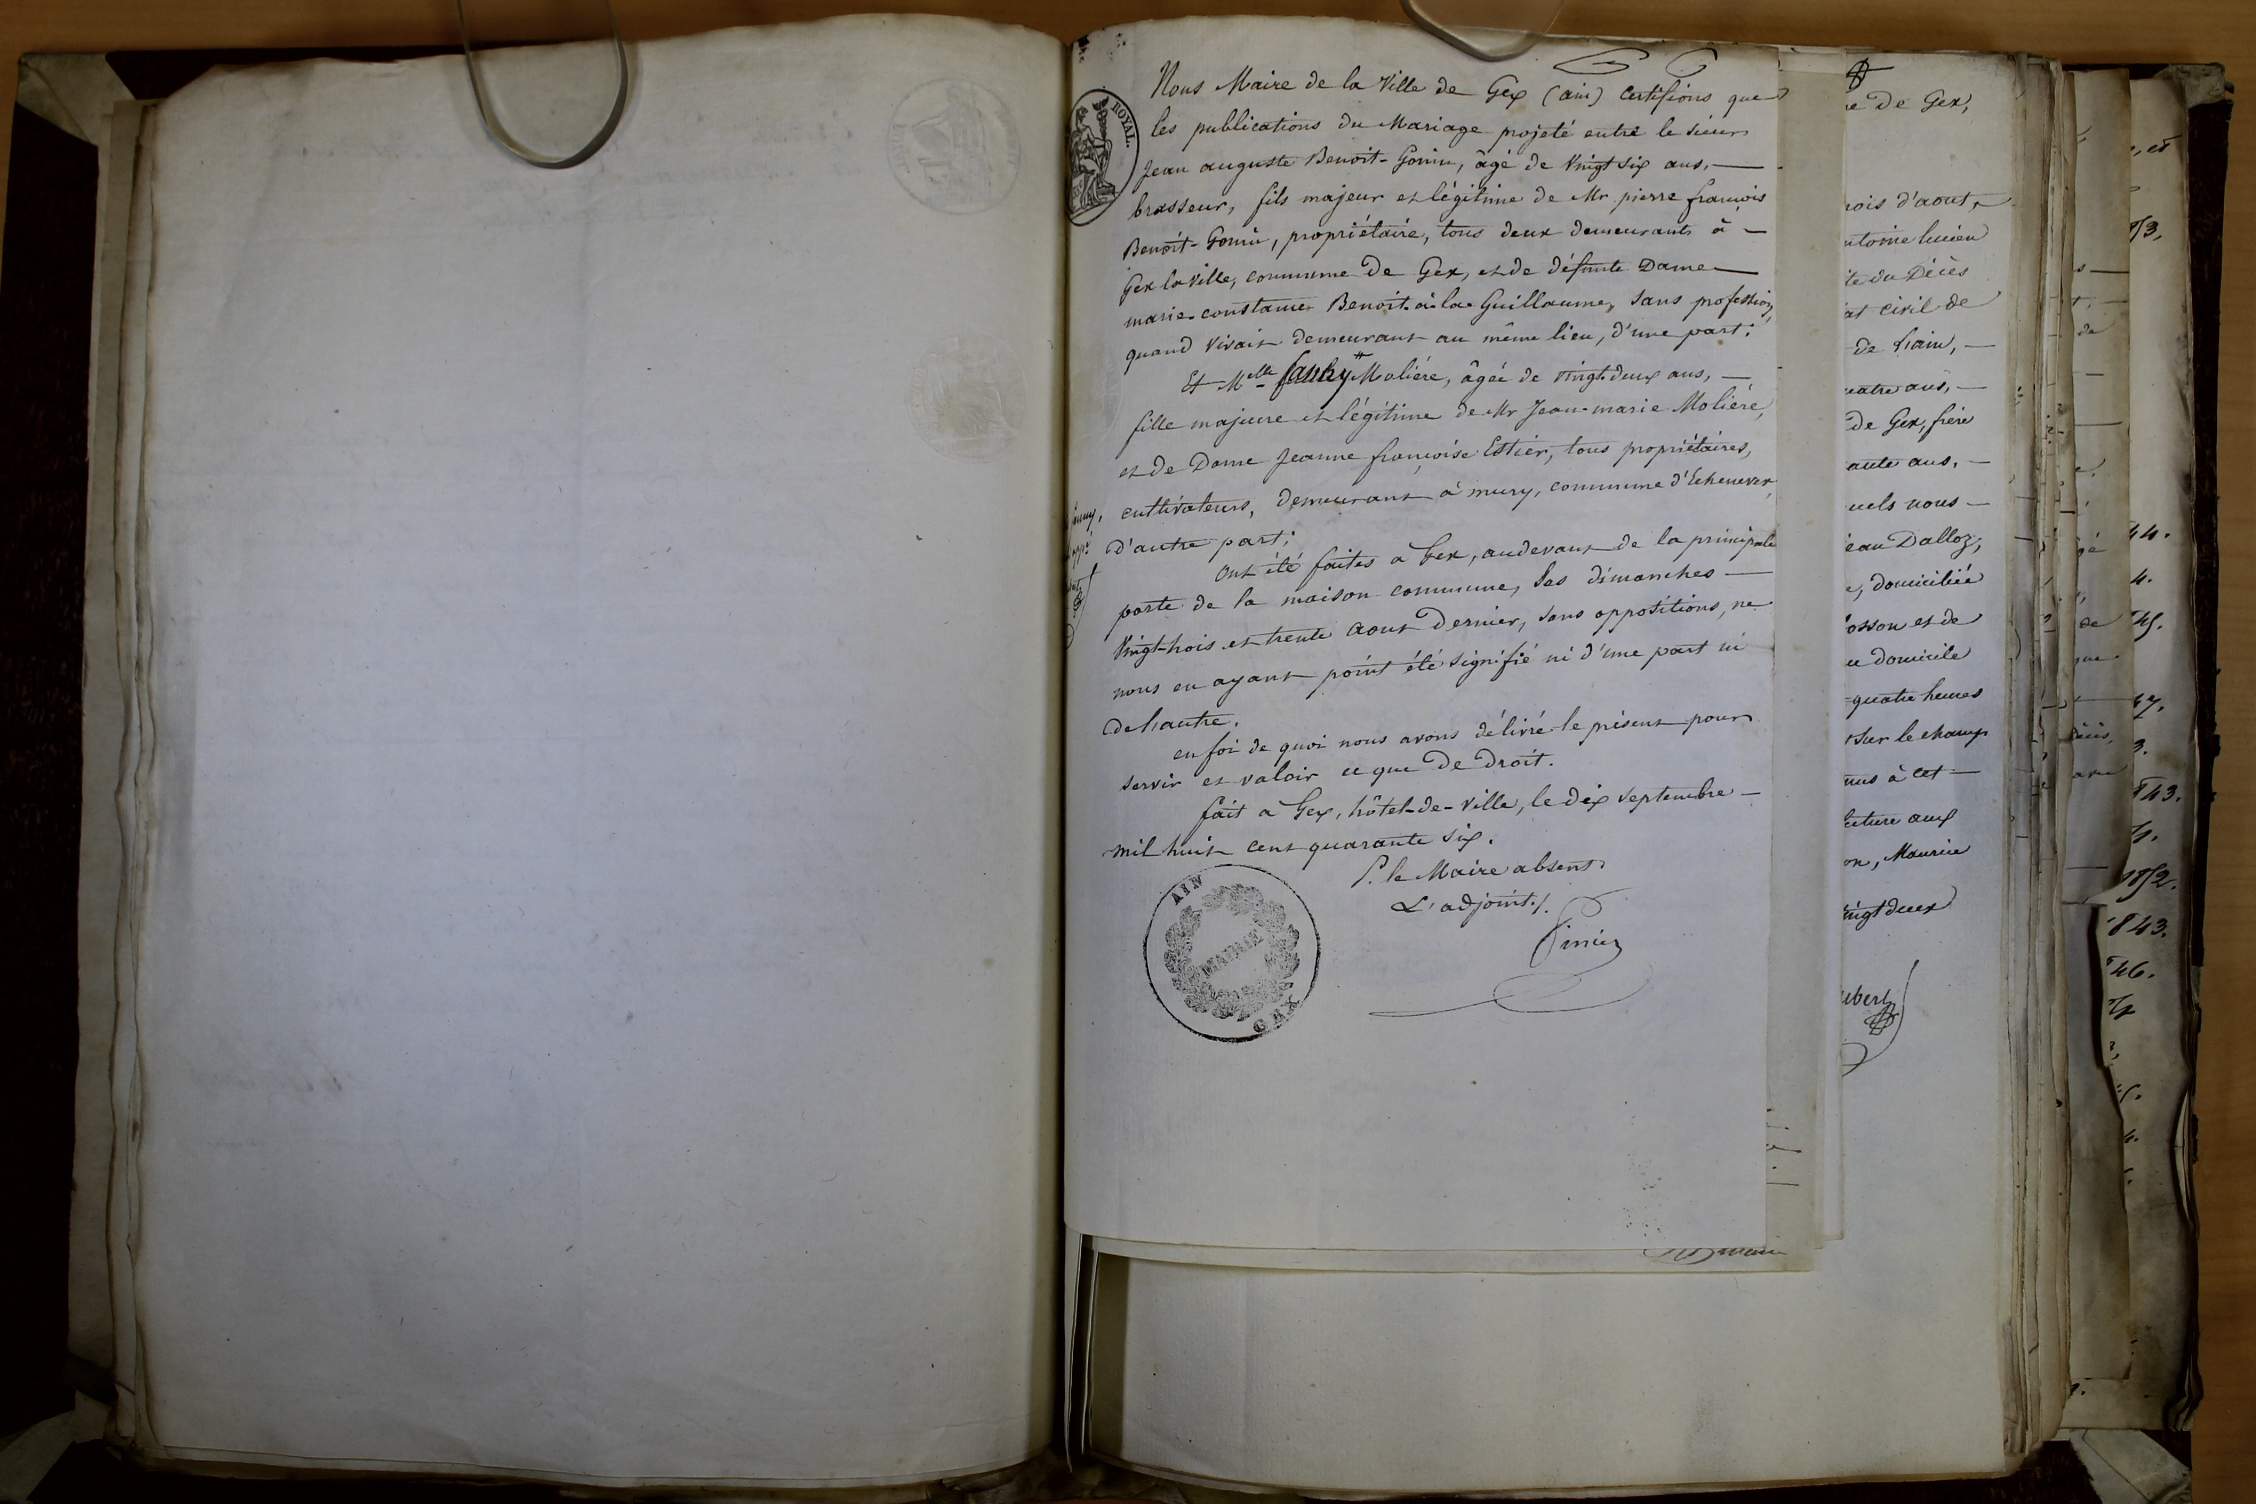 ROYAL.
Nous Maire de la Ville de Gex (ain) Certifions que
les publications du Mariage projeté entre le sieur
Jean auguste Benoit-Gonin, âgé de Vingt six ans,
brasseur, fils majeur et légitime de Mr pierre françois
Benoit-Gonin, propriétaire, tous deux demeurants à
Gex la ville, commune de Gex, et de défunte Dame
marie-constance Benoit-à-la-Guillaume, sans profession,
quand vivait demeurant au même lieu, d'une part;
Et Melle fanny Molière, âgée de vingt-deux ans,
fille majeure et légitime de Mr Jean-marie Molière,
et de Dame Jeanne françoise Estier, tous propriétaires,
cultivateurs, demeurant à mury, commune d'Echenevex,
d'autre part;
Ont été faites à Gex, audevant de la principale
porte de la maison commune, les dimanches
Vingt-trois et trente aout Dernier, sans oppositions, ne
nous en ayant point été signifié ni d'une part ni
de l'autre.
en foi de quoi nous avons délivré le présent pour
servir et valoir ce que de Droit.
fait à Gex, hôtel-de-ville, le dix septembre
mil huit cent quarante six.
P. le Maire absent
L'adjoint.
AIN
MAIRIE
GEX
de Gex,
mois d'aout,
antoine lucien
du Décès
civil de
de l'ain,
quatre ans,
de Gex, frère
ante ans,
quels nous
Jean Dalloz,
domiciliée
osson et de
domicile
quatre heures
sur le champ
à cet
lecture aux
Maurice
vingt deux
44.
4.
45.
47.
3.
843.
1852.
1843.
46.